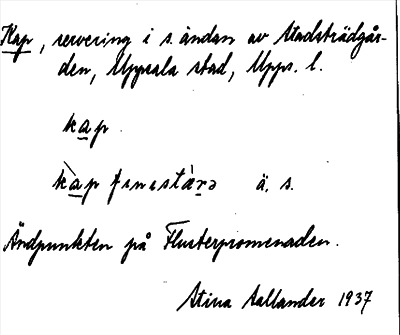 Kap, servering i s. ändan av Stadsträdgår-
den, Uppsala stad, Upps. l.
kap
kàp finistæ̀rə ä. s.
Ändpunkten på Flusterpromenaden.
Stina Aallander 1937